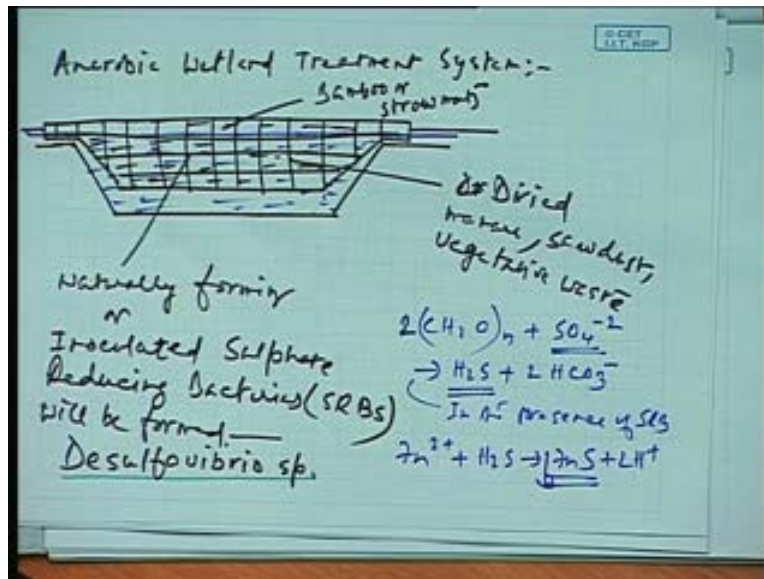 © CET
I.I.T. KGP
Anerobic Wetland Treatment System:-
Bamboo or
straw mats
Dried
manure, sawdust,
vegetative waste
Naturally forming
or
Inoculated Sulphate
Reducing Bacterias (SRBs)
will be formed.
Desulfovibrio sp.
2(CH₂O)n + SO₄⁻²
→ H₂S + 2HCO₃⁻
In the presence of SRB
Zn²⁺ + H₂S → ZnS + 2H⁺